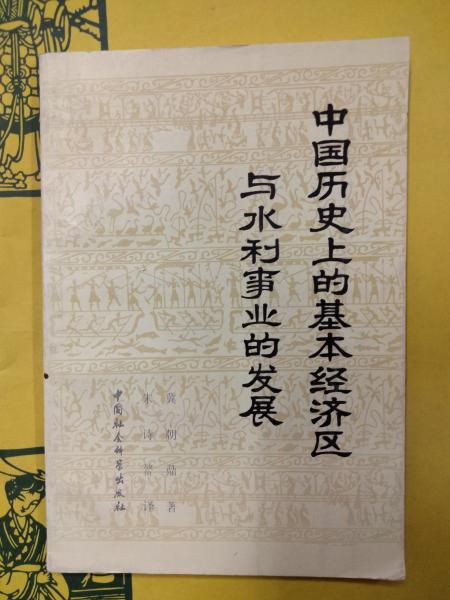 中国历史上的基本经济区
与水利事业的发展
冀朝鼎著
朱诗鳌译
中国社会科学出版社